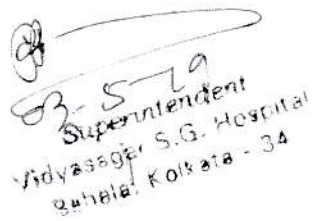 03-5-19
Superintendent
Vidyasagar S.G. Hospital
Behala, Kolkata - 34